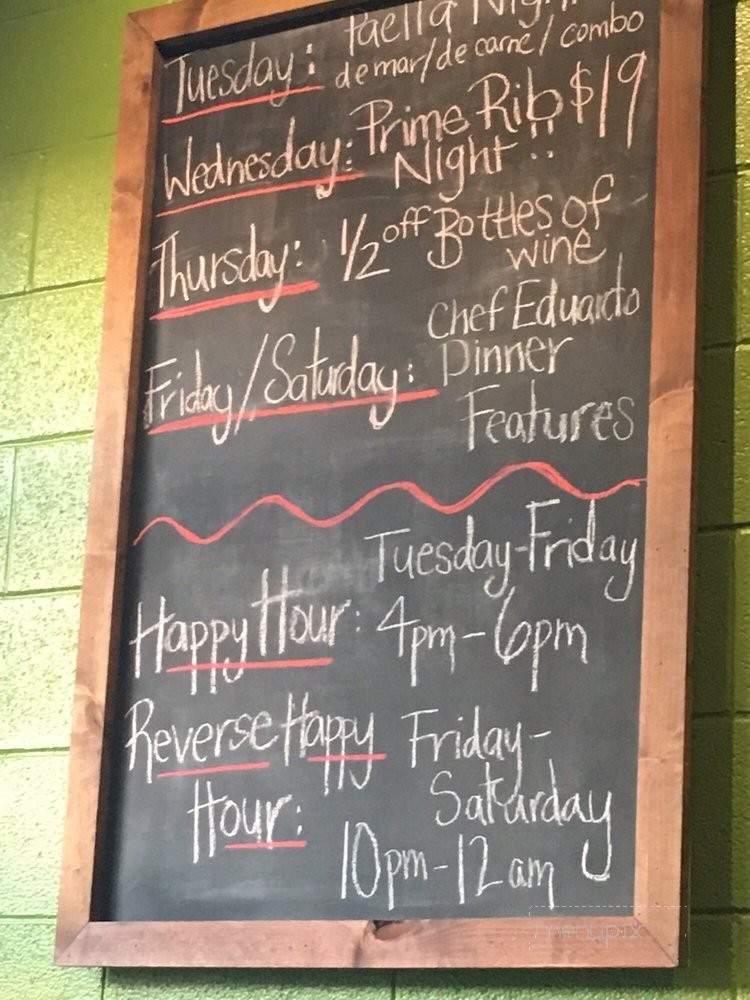 Tuesday: Paella Night
de mar/de carne/combo
Wednesday: Prime Rib $19
Night !!
Thursday: 1/2 off Bottles of
wine
Chef Eduardo
Friday/Saturday: Dinner
Features
Tuesday-Friday
Happy Hour: 4pm-6pm
Reverse Happy Friday-
Hour: Saturday
10pm-12am
menupix